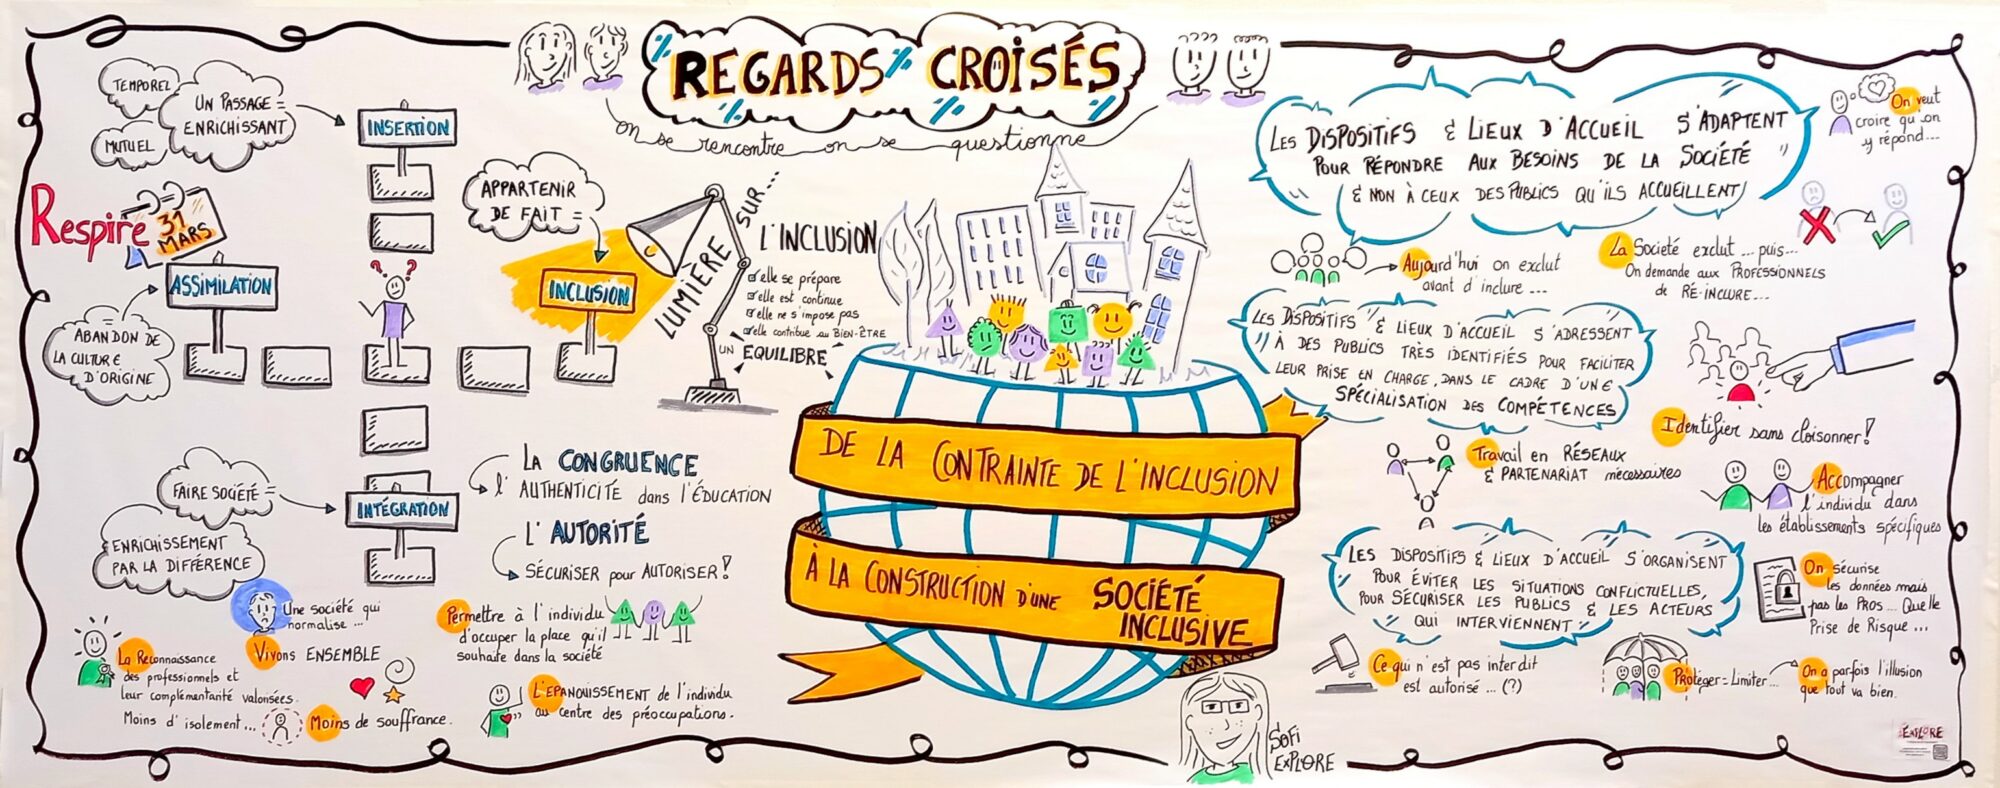 REGARDS CROISÉS
on se rencontre on se questionne
TEMPOREL
MUTUEL
UN PASSAGE =
ENRICHISSANT
INSERTION
Respire
31
MARS
ASSIMILATION
ABANDON DE
LA CULTURE
D'ORIGINE
APPARTENIR
DE FAIT =
INCLUSION
LUMIÈRE SUR ....
L'INCLUSION
elle se prépare
elle est continue
elle ne s'impose pas
elle contribue au BIEN-ÊTRE
UN EQUILIBRE
FAIRE SOCIÉTÉ =
INTÉGRATION
ENRICHISSEMENT
PAR LA DIFFÉRENCE
LA CONGRUENCE
L'AUTHENTICITÉ dans l'ÉDUCATION
L'AUTORITÉ
SÉCURISER pour AUTORISER !
Une société qui
normalise ...
Vivons ENSEMBLE
La Reconnaissance
des professionnels et
leur complémentarité valorisées.
Moins d'isolement ...
Moins de souffrance.
Permettre à l'individu
d'occuper la place qu'il
souhaite dans la société
L'EPANOUISSEMENT de l'individu
au centre des préoccupations.
DE LA CONTRAINTE DE L'INCLUSION
À LA CONSTRUCTION D'UNE SOCIÉTÉ
INCLUSIVE
SOFi
EXPLORE
LES DISPOSITIFS & LIEUX D'ACCUEIL S'ADAPTENT
POUR RÉPONDRE AUX BESOINS DE LA SOCIÉTÉ
& NON À CEUX DES PUBLICS QU'ILS ACCUEILLENT
On veut
croire qu'on
y répond...
Aujourd'hui on exclut
avant d'inclure ...
La Société exclut ... puis...
On demande aux PROFESSIONNELS
de RE-INCLURE...
LES DISPOSITIFS & LIEUX D'ACCUEIL S'ADRESSENT
À DES PUBLICS TRÈS IDENTIFIÉS POUR FACILITER
LEUR PRISE EN CHARGE, DANS LE CADRE D'UNE
SPÉCIALISATION DES COMPÉTENCES
Identifier sans cloisonner !
Travail en RÉSEAUX
& PARTENARIAT nécessaires
Accompagner
l'individu dans
les établissements spécifiques
LES DISPOSITIFS & LIEUX D'ACCUEIL S'ORGANISENT
POUR ÉVITER LES SITUATIONS CONFLICTUELLES,
POUR SÉCURISER LES PUBLICS & LES ACTEURS
QUI INTERVIENNENT
On sécurise
les données mais
pas les PROS... Quelle
Prise de Risque ...
Ce qui n'est pas interdit
est autorisé ... (?)
Protéger = Limiter ...
On a parfois l'illusion
que tout va bien.
EXPLORE